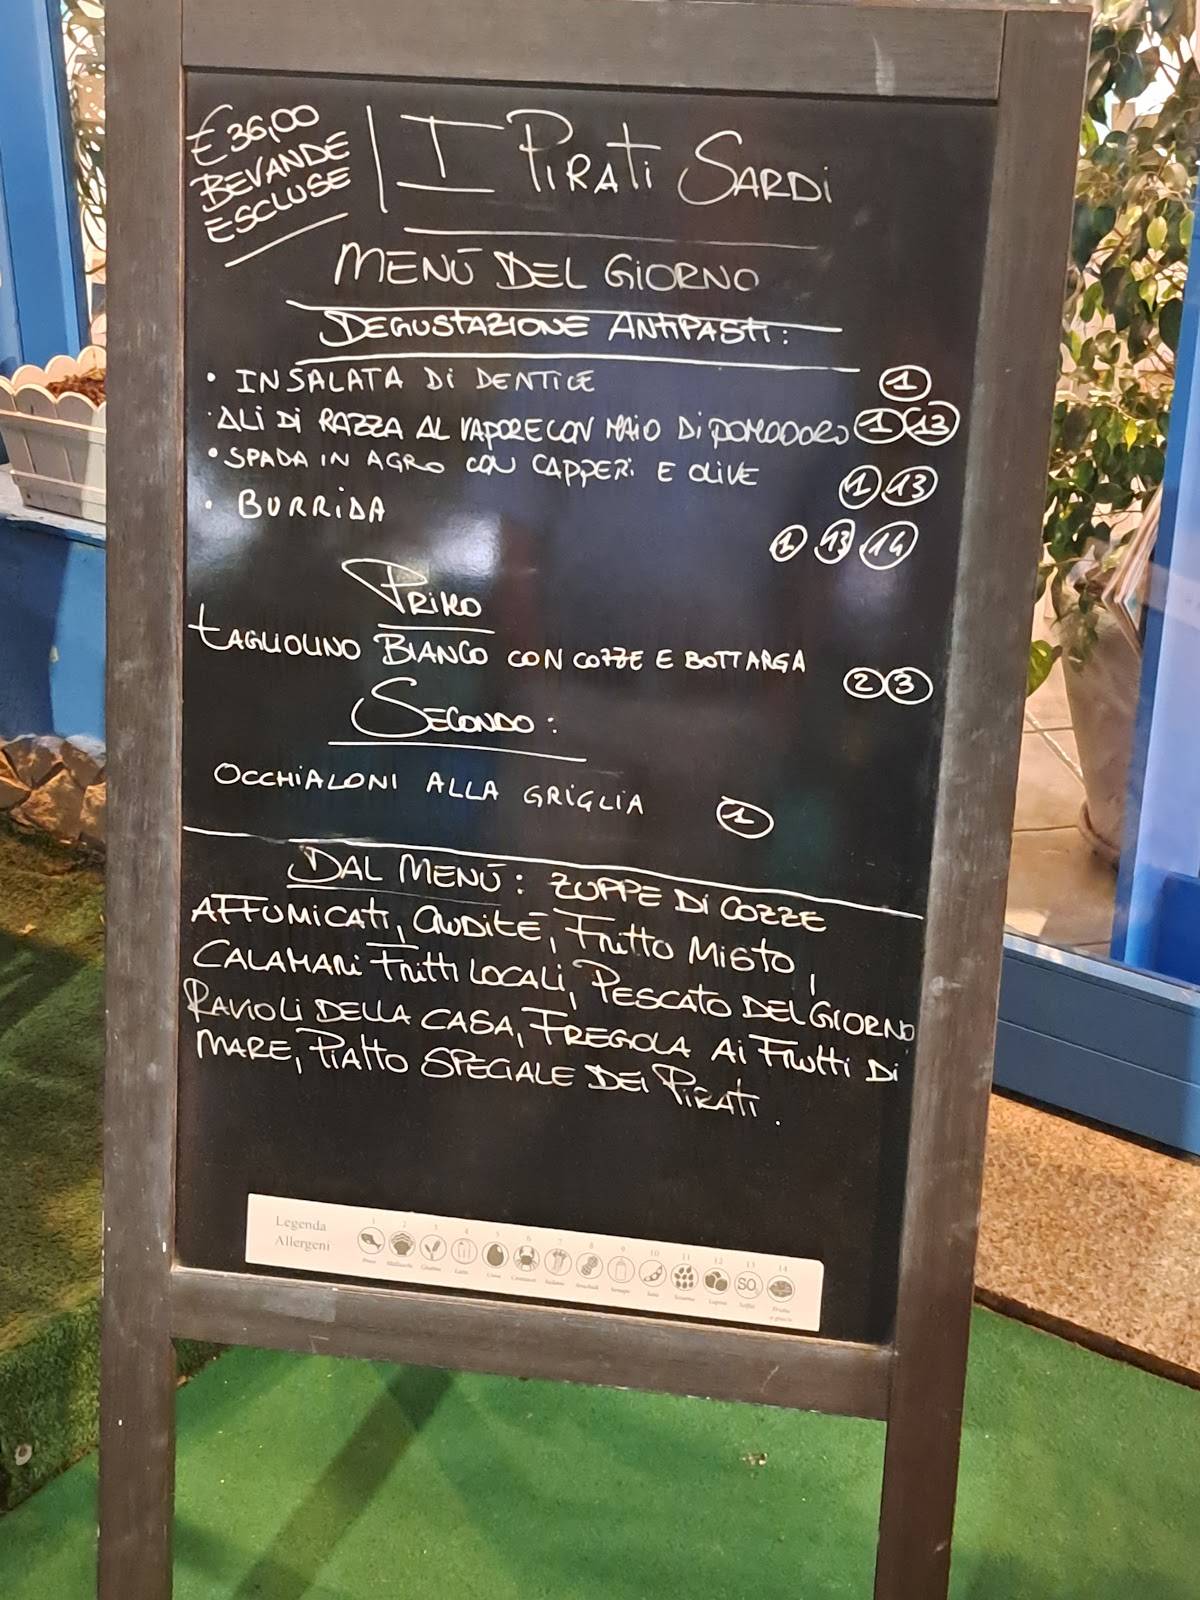 €36,00
BEVANDE
ESCLUSE
I PIRATI SARDI
MENÙ DEL GIORNO
DEGUSTAZIONE ANTIPASTI:
• INSALATA DI DENTICE 1
• ALI DI RAZZA AL VAPORE CON MAIO DI POMODORO 1 13
• SPADA IN AGRO CON CAPPERI E OLIVE 1 13
• BURRIDA 1 13 14
PRIMO
TAGLIOLINO BIANCO CON COZZE E BOTTARGA 2 3
SECONDO:
OCCHIALONI ALLA GRIGLIA 1
DAL MENÙ: ZUPPE DI COZZE
AFFUMICATI, CRUDITÉ, FRITTO MISTO,
CALAMARI FRITTI LOCALI, PESCATO DEL GIORNO
RAVIOLI DELLA CASA, FREGOLA AI FRUTTI DI
MARE, PIATTO SPECIALE DEI PIRATI.
Legenda
Allergeni
1 2 3 4 5 6 7 8 9 10 11 12 13 14
SO₂